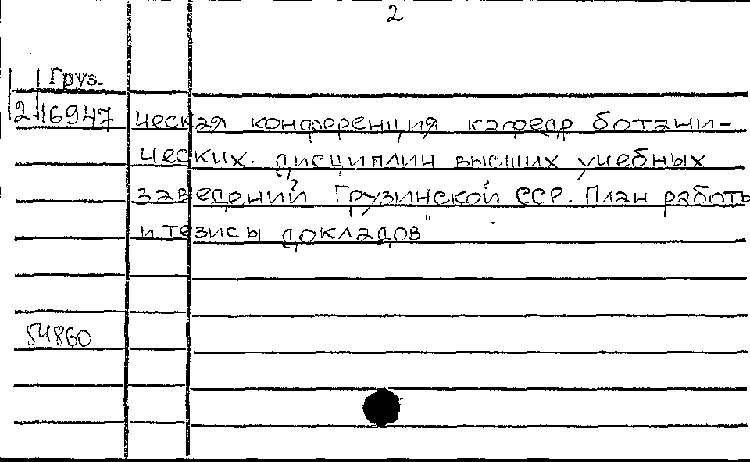 2
Груз.
2 16947 ческая конференция кафедр ботани-
ческих дисциплин высших учебных
заведений Грузинской ССР. План работы
и тезисы докладов"
54860